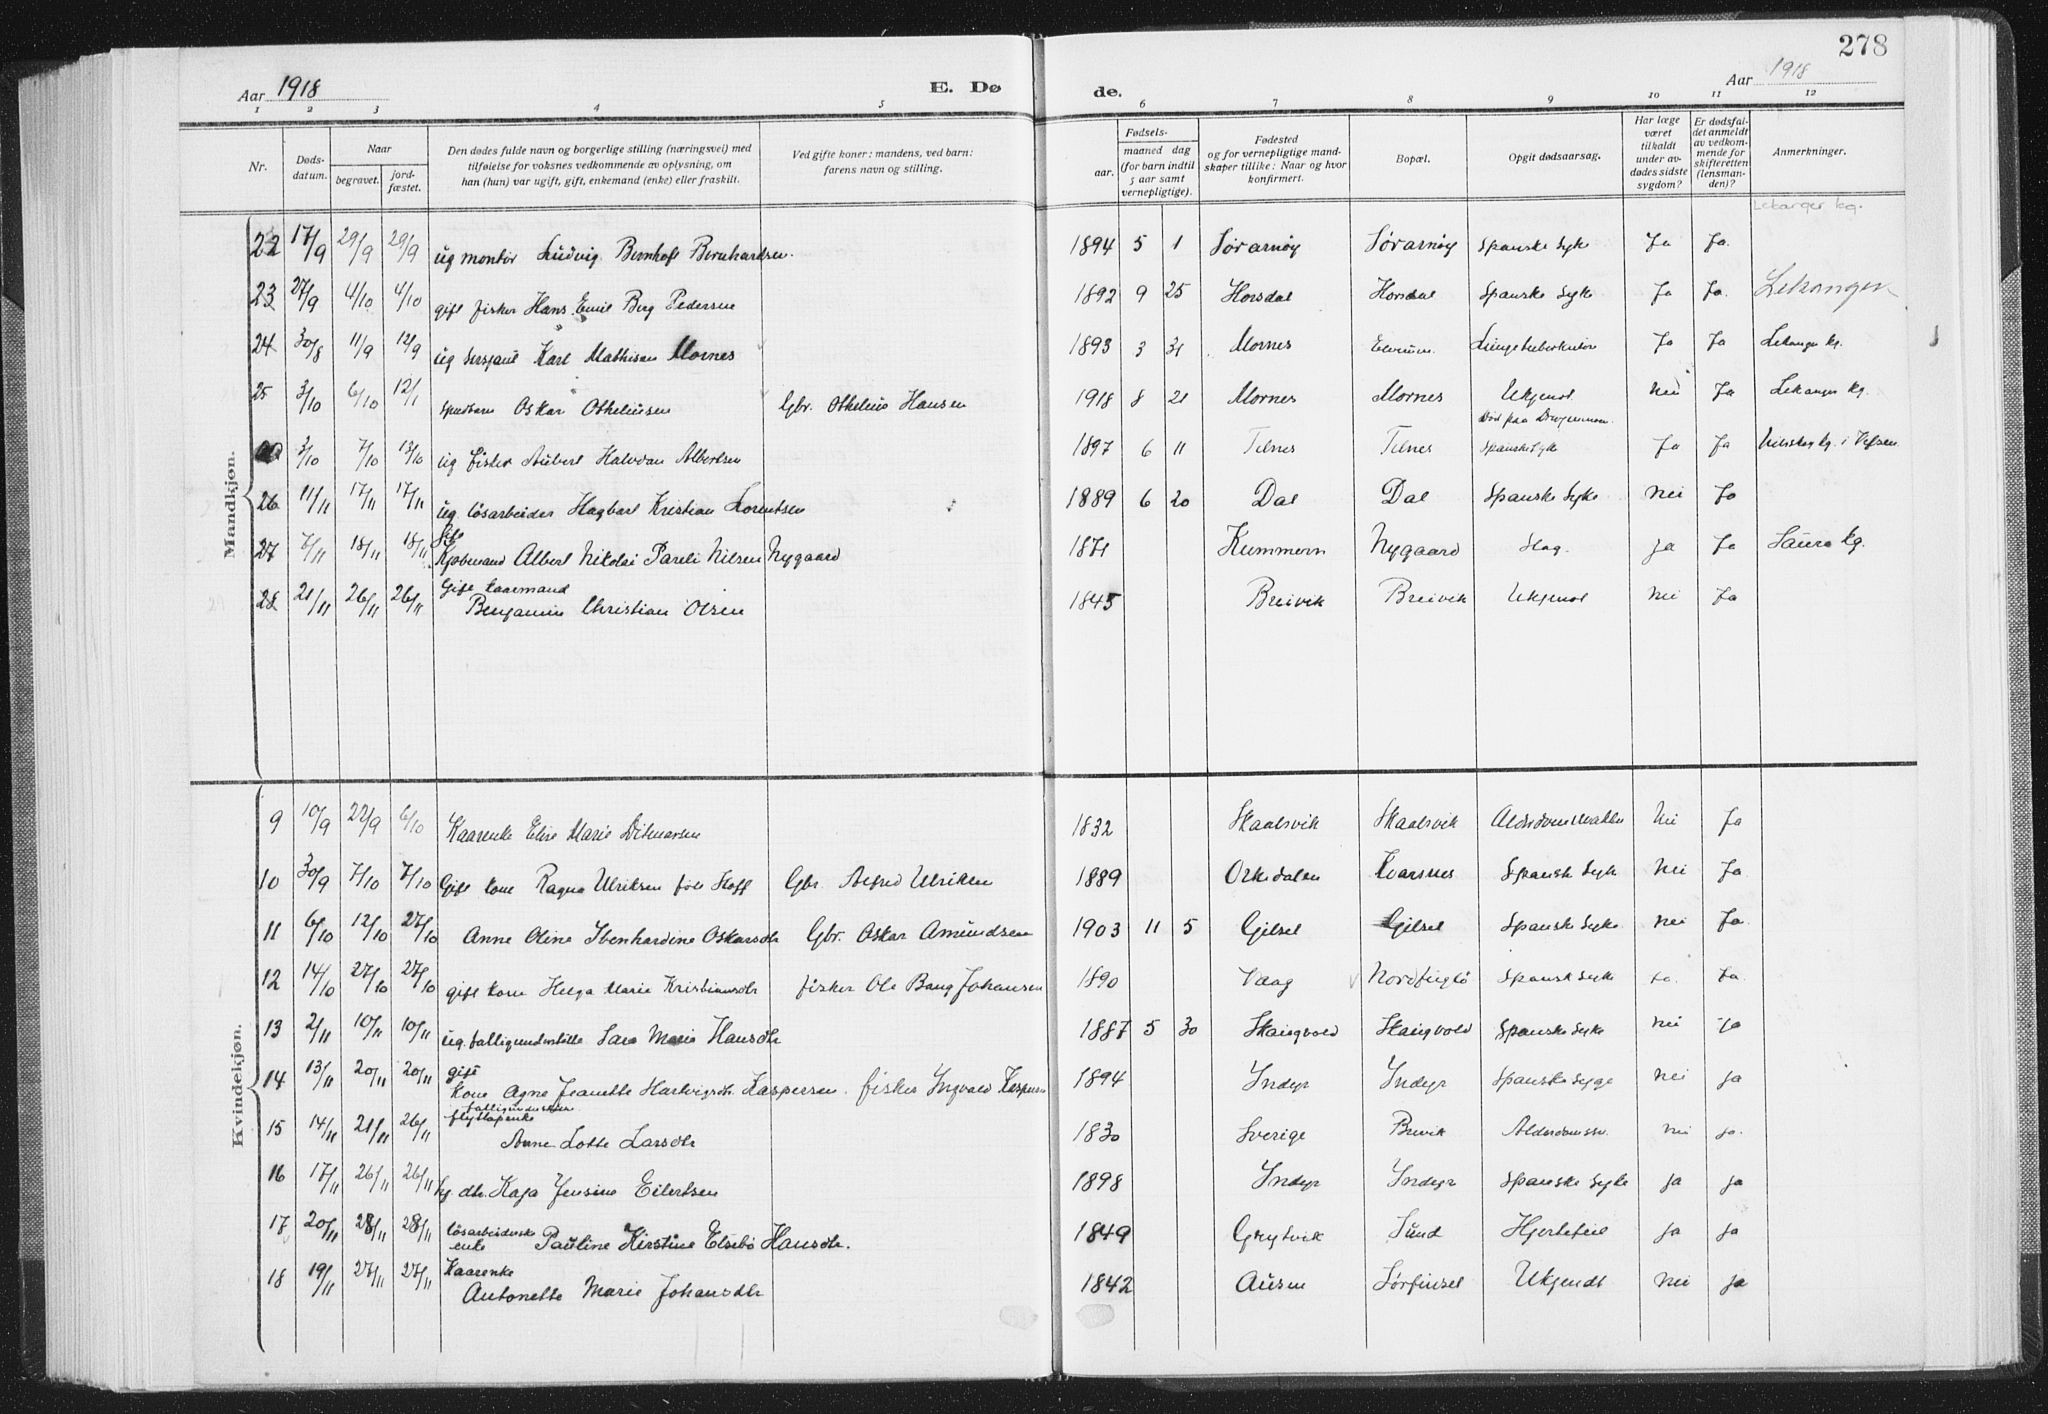 278
Aar 1918
E. Dø
de.
Aar 1918
1 2 3 4 5 6 7 8 9 10 11 12
Nr.
Døds-
datum.
Naar
begravet.
jord-
fæstet.
Den dødes fulde navn og borgerlige stilling (næringsvei) med
tilføielse for voksnes vedkommende av oplysning, om
han (hun) var ugift, gift, enkemand (enke) eller fraskilt.
Ved gifte koner: mandens, ved barn:
farens navn og stilling.
Fødsels-
aar.
maaned dag
(for barn indtil
5 aar samt
vernepligtige).
Fødested
og for vernepligtige mand-
skaper tillike: Naar og hvor
konfirmert.
Bopæl.
Opgit dødsaarsag.
Har læge
været
tilkaldt
under av-
dødes sidste
sygdom?
Er dødsfal-
det anmeldt
av vedkom-
mende for
skifteretten
(lensman-
den)?
Anmerkninger.
Mandkjøn.
Lekanger kg.
22 17/9 29/9 29/9 ug montør Ludvig Bernhoft Bernhardsen. 1894 5 1 Sørarnøy Sørarnøy Spanske Syke Ja Ja.
23 27/9 4/10 4/10 gift fisker Hans Emil Berg Pedersen 1892 9 25 Horsdal Horsdal Spanske Syke Ja Ja. Lekanger
24 30/8 11/9 12/9 ug Sersjant Karl Mathisen Mornes 1893 3 31 Mornes Elverum. Lungetuberkulose Ja Ja Lekanger kg.
25 3/10 6/10 12/1 spædbarn Oskar Otheliusen Gbr. Othelius Hansen 1918 8 21 Mornes Mornes Ukjent Nei Ja Lekanger kg.
Død paa
3/10 7/10 13/10 ug fisker Aubert Halvdan Albertsen 1897 6 11 Telnes Telnes Spanske Syke Ja Ja kg. i Vefsen
26 11/11 17/11 17/11 ug. løsarbeider Hagbart Kristian Lorentsen 1889 6 20 Dal Dal Spanske Syke Nei Ja
Gift
27 7/11 18/11 18/11 Kjøbmand Albert Nikolai Pareli Nilsen Nygaard 1871 Kummern Nygaard Slag. Ja Ja Saura kg.
Gift kaarmand
28 21/11 26/11 26/11 Benjamin Christian Olsen 1845 Breivik Breivik Ukjent Nei Ja
Kvindekjøn.
9 10/9 22/9 6/10 Kaarenke Elise Marie Ditmarsen 1832 Skaalsvik Skaalsvik Alderdomssvakhet Nei Ja
10 30/9 7/10 7/10 Gift kone Ragna Ulriksen født Hoff Gbr. Alfred Ulriksen 1889 Orkedalen Kvarsnes Spansk Syke Nei Ja.
11 6/10 12/10 27/10 Anne Oline Ibenhardine Oskarsdtr Gbr. Oskar Amundsen 1903 11 5 Gilsel Gilsel Spanske Syke Nei Ja.
12 14/10 27/10 27/10 gift kone Helga Marie Kristiansdtr fisker Ole Bang Johansen 1890 Vaag Nordfuglø Spansk Syke Ja. Ja.
13 2/11 10/11 10/11 ug. fattigunderstøtte Sara Marie Hansdtr 1887 5 30 Skaugvold Skaugvold Spanske Syke Nei Ja
gift
14 13/11 20/11 20/11 kone Agne Jeanette Hartvigsdtr. Kaspersen. fisker Ingvald Kaspersen 1894 Indyr Indyr Spanske Syge Nei ja
15 14/11 21/11 26/11 Anne Lotte Larsdtr 1830 Sverige Brevik Alderdomssv. Nei ja.
16 17/11 26/11 26/11 ug. dtr. Kaja Jensine Eilertsen 1898 Indyr Indyr Spanske Syke ja ja
løsarbeiderske
17 20/11 28/11 28/11 enke Pauline Kirstine Elsebø Hansdtr. 1849 Grytvik Sund Hjertefeil ja ja
Kaarenke
18 19/11 27/11 27/11 Antonette Marie Johansdtr 1842 Ausen Sørfinset Ukjendt Nei ja